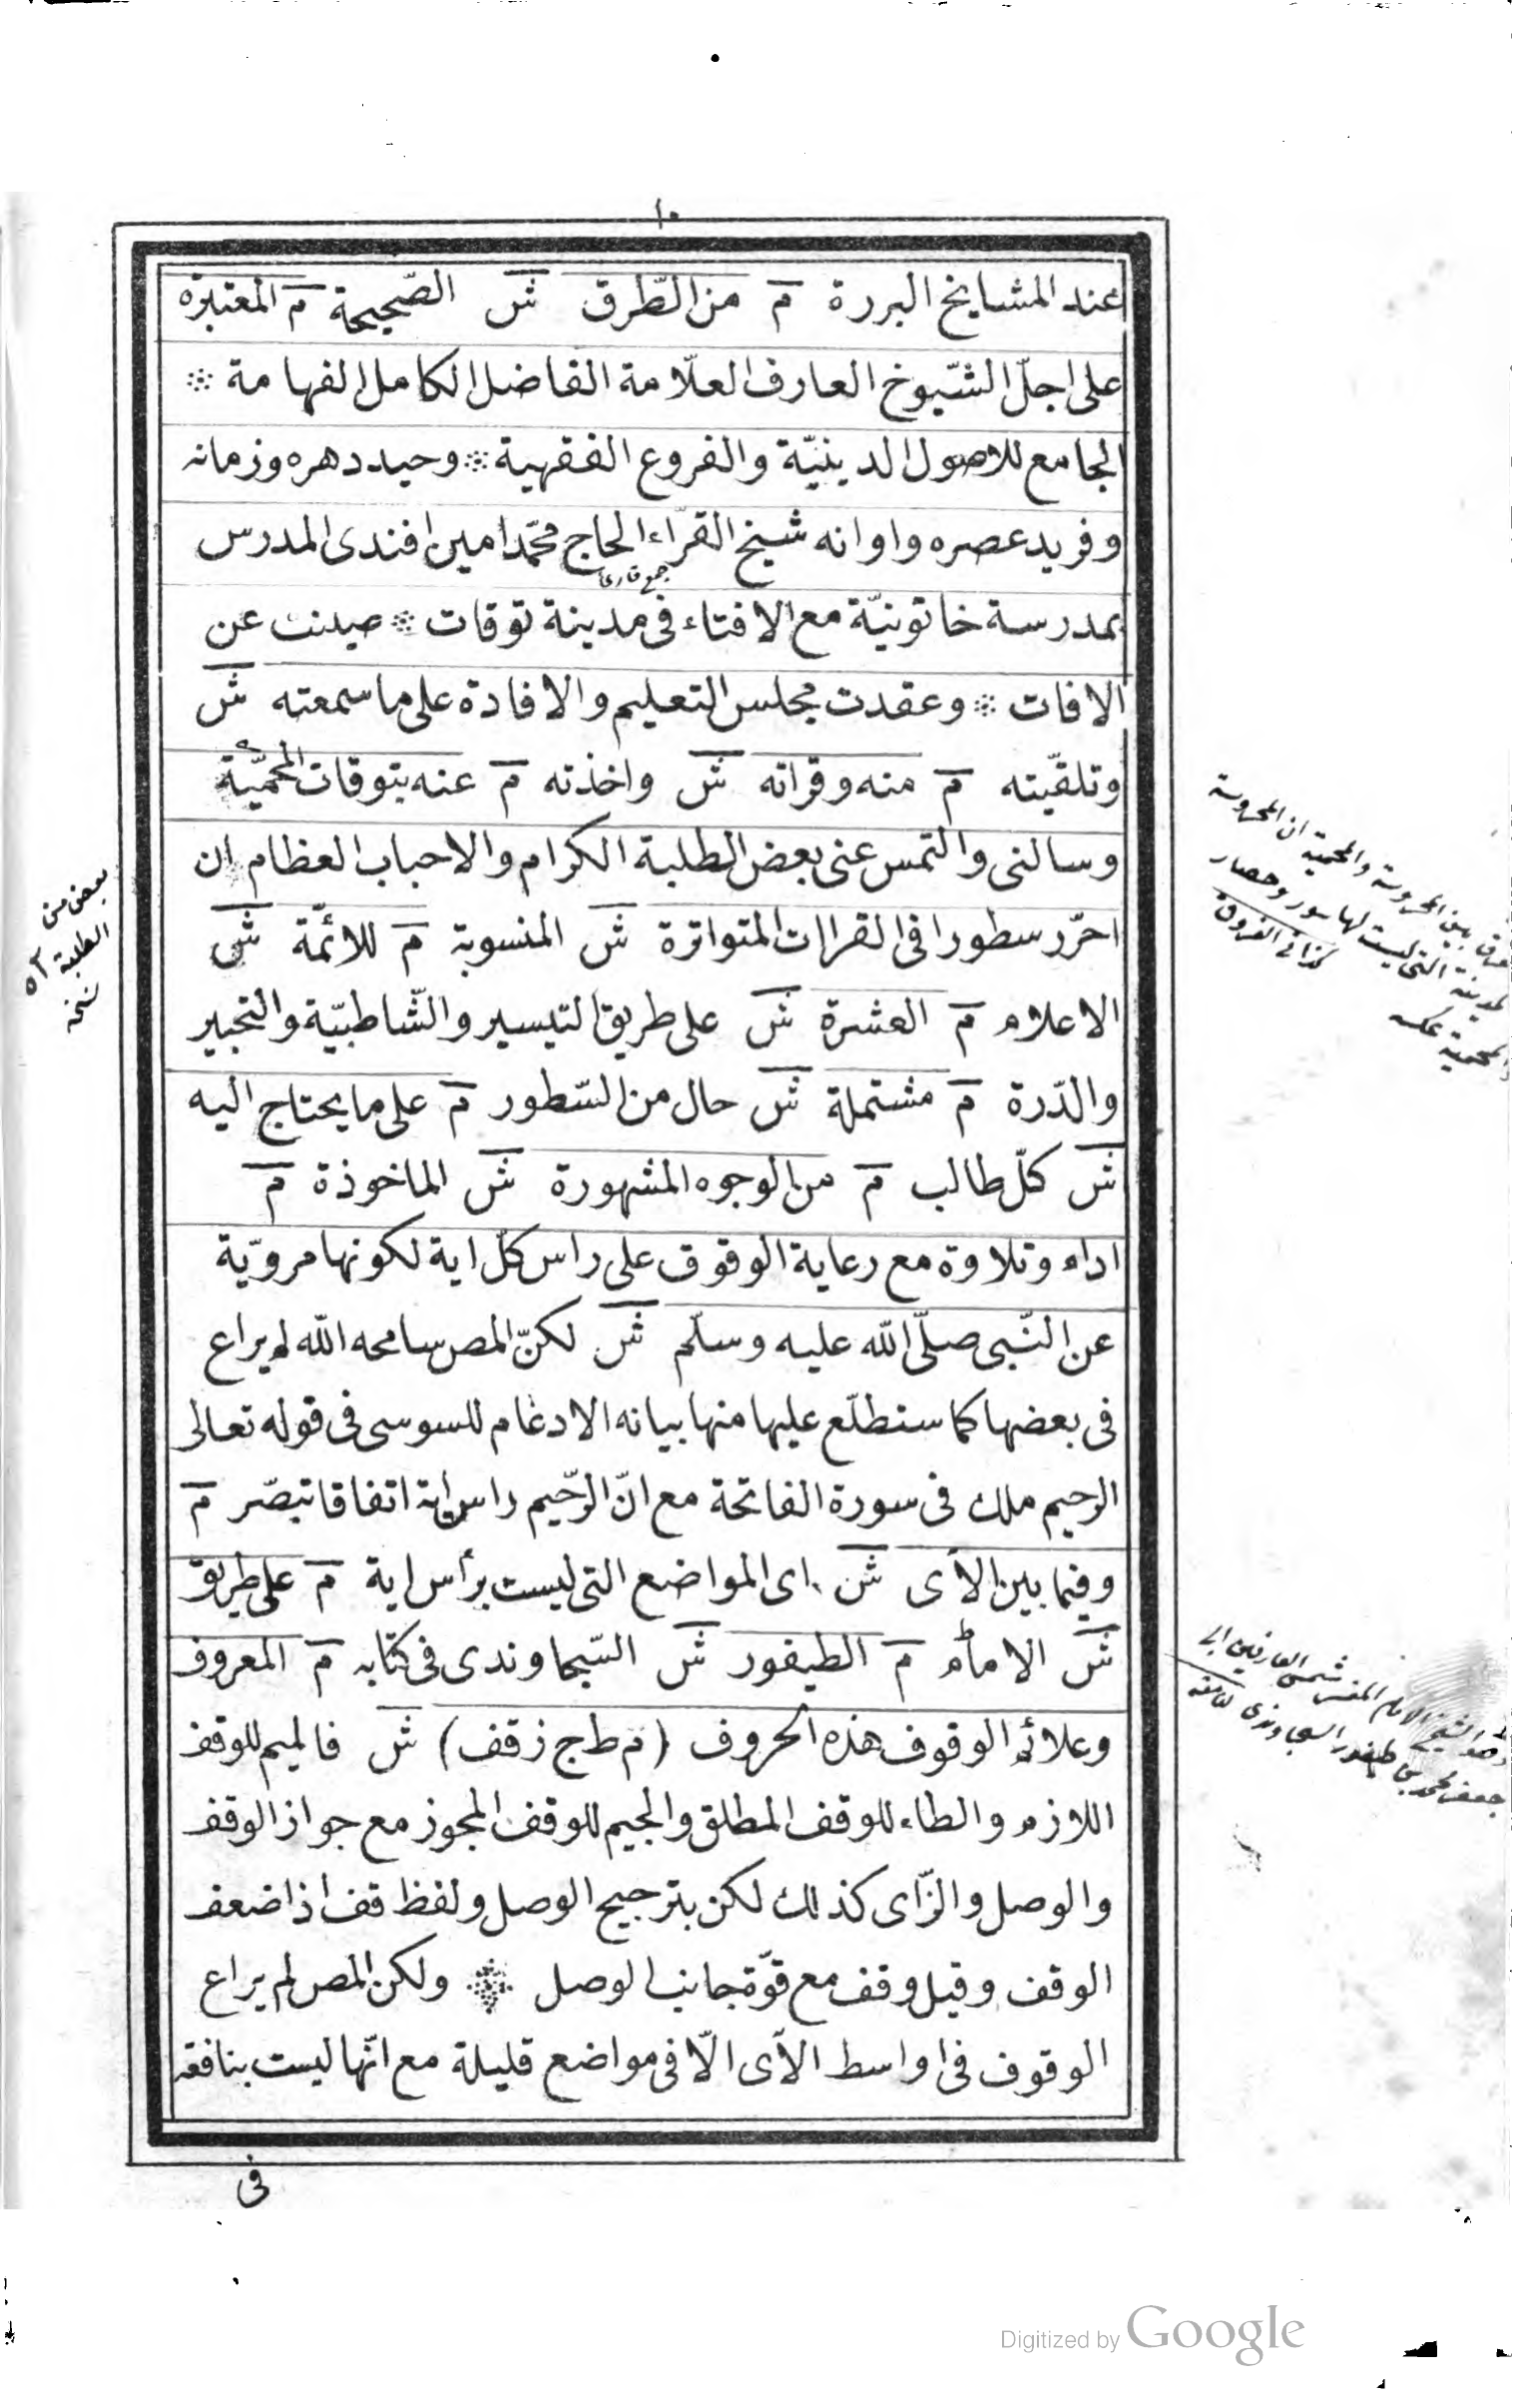 ١٠
عند المشايخ البررة م من الطّرق ش الصّحيحة م المعتبرة
على اجلّ الشّيوخ العارف العلّامة الفاضل الكامل الفهامة
الجامع للاصول الدينيّة والفروع الفقهية وحيد دهره وزمانه
وفريد عصره واوانه شيخ القرّاء الحاج محمّد امين افندى المدرس
جمع قارئ
بمدرسة خاتونيّة مع الافتاء فى مدينة توقات صينت عن
الافات وعقدت مجلس التعليم والافادة على ما سمعته ش
وتلقّيته م منه وقراته ش واخذته م عنه بتوقات المحميّة
وسالنى والتمس عنى بعض الطلبة الكرام والاحباب العظام ان
احرّر سطورا فى القراات المتواترة ش المنسوبة م للائمّة ش
الاعلام م العشرة ش على طريق التيسير والشّاطبيّة والتحبير
والدّرة م مشتملة ش حال من السّطور م على ما يحتاج اليه
ش كلّ طالب م من الوجوه المشهورة ش الماخوذة م
اداء وتلاوة مع رعاية الوقوف على راس كلّ اية لكونها مرويّة
عن النّبى صلّى اللّه عليه وسلّم ش لكنّ المص سامحه اللّه لم يراع
فى بعضها كما ستطلّع عليها منها بيانه الادغام للسوسى فى قوله تعالى
الرحيم ملك فى سورة الفاتحة مع انّ الرّحيم راس اية اتفاقا تبصّر م
وفيما بين الآى ش اى المواضع التى ليست برأس اية م على طريق
ش الامام م الطيفور ش السّجاوندى فى كتابه م المعروف
وعلائم الوقوف هذه الحروف (م ط ج ز قف) ش فالميم للوقف
اللازم والطاء للوقف المطلق والجيم للوقف المجوز مع جواز الوقف
والوصل والزّاى كذلك لكن بترجيح الوصل ولفظ قف اذا ضعف
الوقف وقيل وقف مع قوّة جانب الوصل ولكن المص لم يراع
الوقوف فى اواسط الآى الّا فى مواضع قليلة مع انّها ليست بنافعة
فى
بعض من
الطلبة
نسخه
بين المحروسة والمحمية ان المحروسة
المدينة التى ليست لها سور وحصار
والمحمية عكسه
كذا فى الفروق
الشيخ الامام المفسر شمس العارفين ابى
جعفر محمد بن طيفور السجاوندى
Digitized by Google